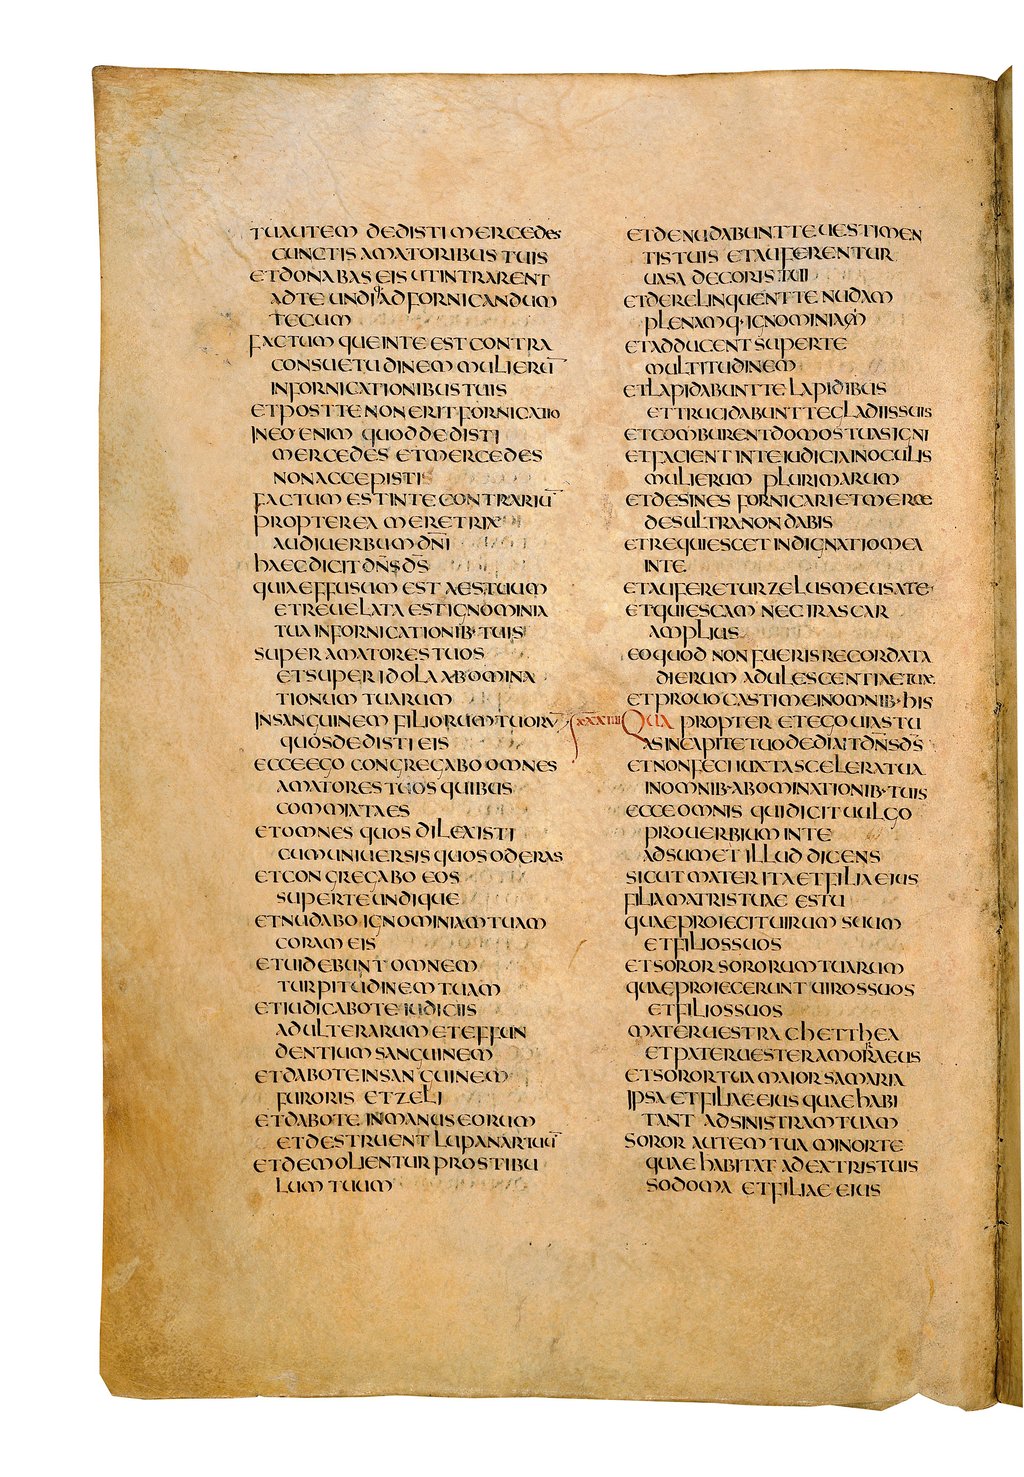 TU AUTEM DEDISTI MERCEDES
CUNCTIS AMATORIBUS TUIS
ET DONABAS EIS UT INTRARENT
AD TE UNDIQ AD FORNICANDUM
TECUM
FACTUMQUE IN TE EST CONTRA
CONSUETUDINEM MULIERŪ
IN FORNICATIONIBUS TUIS
ET POST TE NON ERIT FORNICATIO
IN EO ENIM QUOD DEDISTI
MERCEDES ET MERCEDES
NON ACCEPISTI
FACTUM EST IN TE CONTRARIŪ
PROPTEREA MERETRIX
AUDI UERBUM DN̄I
HAEC DICIT DN̄S D̄S
QUIA EFFUSUM EST AES TUUM
ET REUELATA EST IGNOMINIA
TUA IN FORNICATIONIB· TUIS
SUPER AMATORES TUOS
ET SUPER IDOLA ABOMINA
TIONUM TUARUM
IN SANGUINEM FILIORUM TUORŪ
QUOS DEDISTI EIS
ECCE EGO CONGREGABO OMNES
AMATORES TUOS QUIBUS
COMMIXTA ES
ET OMNES QUOS DILEXISTI
CUM UNIUERSIS QUOS ODERAS
ET CONGREGABO EOS
SUPER TE UNDIQUE
ET NUDABO IGNOMINIAM TUAM
CORAM EIS
ET UIDEBUNT OMNEM
TURPITUDINEM TUAM
ET IUDICABO TE IUDICIIS
ADULTERARUM ET EFFUN
DENTIUM SANGUINEM
ET DABO TE IN SANGUINEM
FURORIS ET ZELI
ET DABO TE IN MANUS EORUM
ET DESTRUENT LUPANAR TUŪ
ET DEMOLIENTUR PROSTIBU
LUM TUUM
ET DENUDABUNT TE UESTIMEN
TIS TUIS ET AUFERENTUR
UASA DECORIS TUI
ET DERELINQUENT TE NUDAM
PLENAMQ· IGNOMINIAM
ET ADDUCENT SUPER TE
MULTITUDINEM
ET LAPIDABUNT TE LAPIDIBUS
ET TRUCIDABUNT TE GLADIIS SUIS
ET COMBURENT DOMOS TUAS IGNI
ET FACIENT IN TE IUDICIA IN OCULIS
MULIERUM PLURIMARUM
ET DESINES FORNICARI ET MERCE
DES ULTRA NON DABIS
ET REQUIESCET INDIGNATIO MEA
IN TE
ET AUFERETUR ZELUS MEUS A TE
ET QUIESCAM NEC IRASCAR
AMPLIUS
EO QUOD NON FUERIS RECORDATA
DIERUM ADULESCENTIAE TUAE
ET PROUOCASTI ME IN OMNIB· HIS
XXXIIII QUA PROPTER ET EGO UIAS TU
AS IN CAPITE TUO DEDI AIT DN̄S D̄S
ET NON FECI IUXTA SCELERA TUA
IN OMNIB· ABOMINATIONIB· TUIS
ECCE OMNIS QUI DICIT UULGO
PROUERBIUM IN TE
ADSUMET ILLUD DICENS
SICUT MATER ITA ET FILIA EIUS
FILIA MATRIS TUAE ES TU
QUAE PROIECIT UIRUM SUUM
ET FILIOS SUOS
ET SOROR SORORUM TUARUM
QUAE PROIECERUNT UIROS SUOS
ET FILIOS SUOS
MATER UESTRA CHETTHEA
ET PATER UESTER AMORRAEUS
ET SOROR TUA MAIOR SAMARIA
IPSA ET FILIAE EIUS QUAE HABI
TANT AD SINISTRAM TUAM
SOROR AUTEM TUA MINOR TE
QUAE HABITAT A DEXTRIS TUIS
SODOMA ET FILIAE EIUS